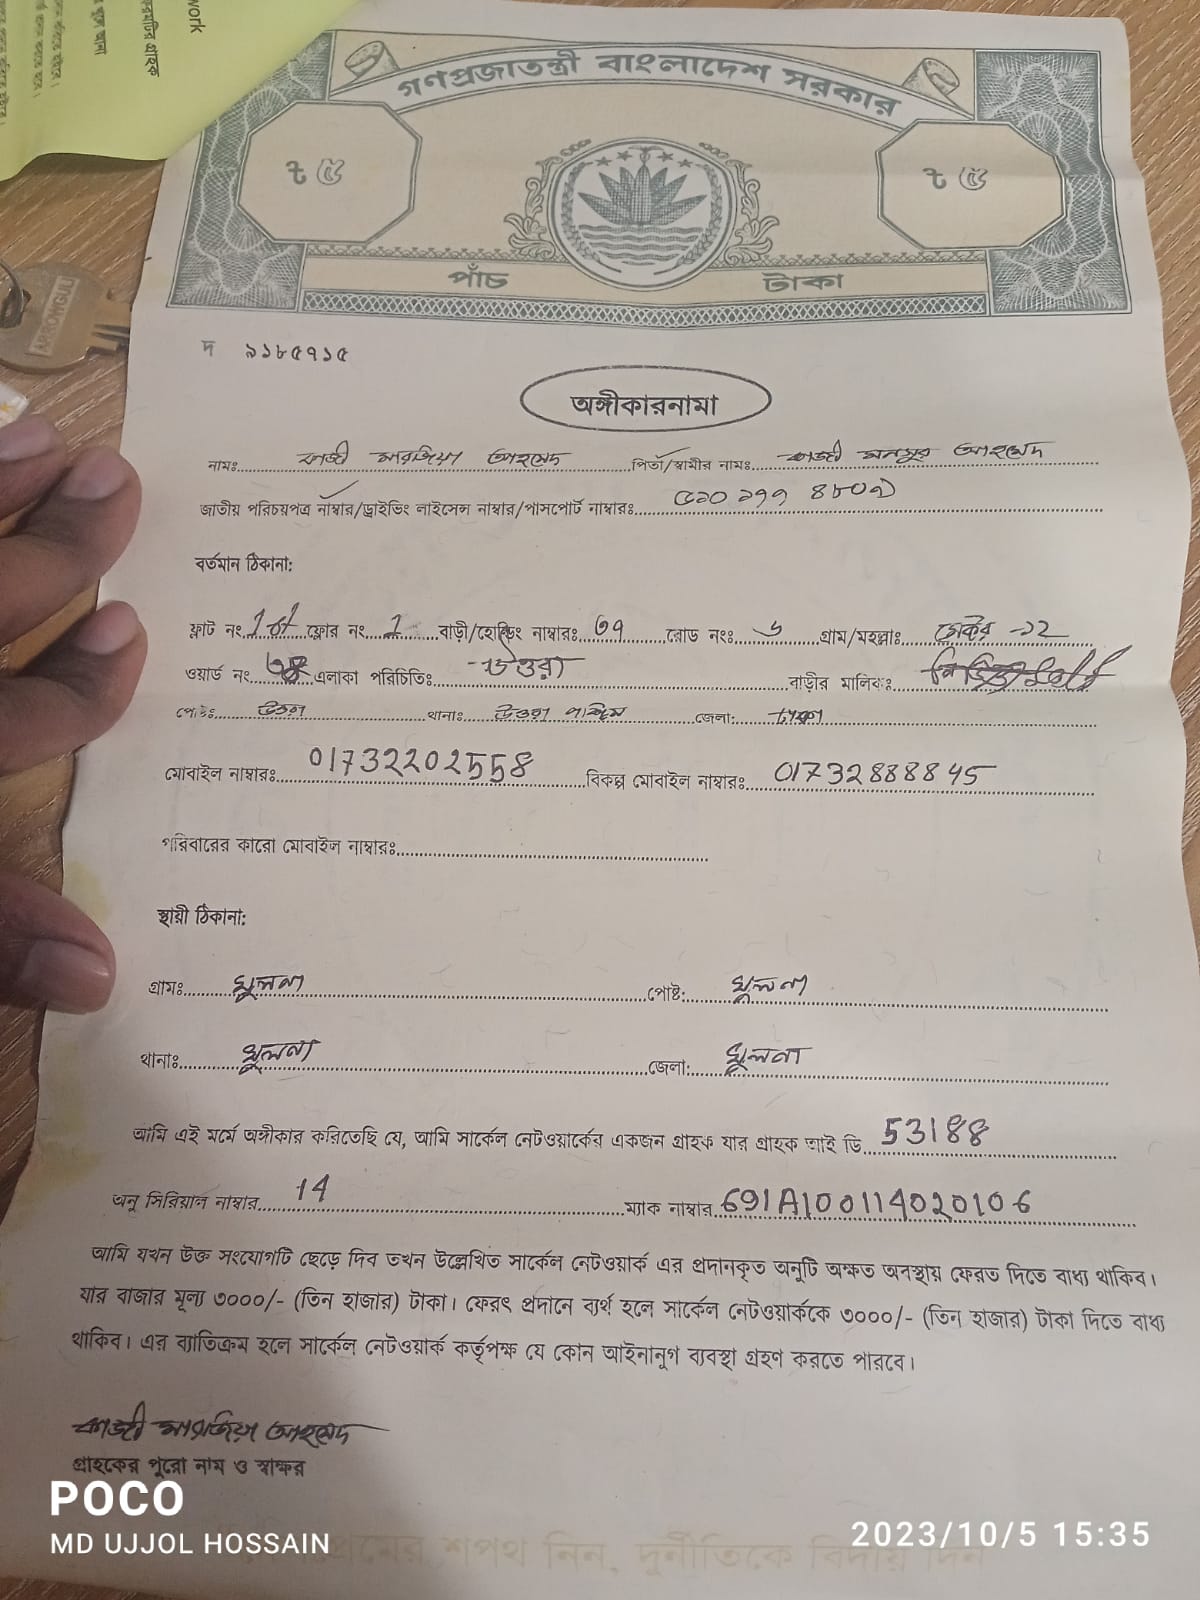 work
গণপ্রজাতন্ত্রী বাংলাদেশ সরকার
৳ ৫ ৳ ৫
পাঁচ টাকা
দ ৯১৮৫৭১৫
অঙ্গীকারনামা
নামঃ কাজী মারজিয়া আহমেদ পিতা/স্বামীর নামঃ কাজী মনসুর আহমেদ
জাতীয় পরিচয়পত্র নাম্বার/ড্রাইভিং লাইসেন্স নাম্বার/পাসপোর্ট নাম্বারঃ
বর্তমান ঠিকানা:
ফ্লাট নং 1st ফ্লোর নং 1 বাড়ী/হোল্ডিং নাম্বারঃ ৩৭ রোড নংঃ ৬ গ্রাম/মহল্লাঃ সেক্টর -১২
ওয়ার্ড নং এলাকা পরিচিতিঃ উত্তরা বাড়ীর মালিকঃ
পোষ্টঃ উত্তরা থানাঃ উত্তরা পশ্চিম জেলা: ঢাকা
মোবাইল নাম্বারঃ 01732202558 বিকল্প মোবাইল নাম্বারঃ 01732888845
পরিবারের কারো মোবাইল নাম্বারঃ
স্থায়ী ঠিকানা:
গ্রামঃ খুলনা পোষ্ট: খুলনা
থানাঃ খুলনা জেলা: খুলনা
আমি এই মর্মে অঙ্গীকার করিতেছি যে, আমি সার্কেল নেটওয়ার্কের একজন গ্রাহক যার গ্রাহক আই ডি 53188
অনু সিরিয়াল নাম্বার 14 ম্যাক নাম্বার 691A100114020106
আমি যখন উক্ত সংযোগটি ছেড়ে দিব তখন উল্লেখিত সার্কেল নেটওয়ার্ক এর প্রদানকৃত অনুটি অক্ষত অবস্থায় ফেরত দিতে বাধ্য থাকিব।
যার বাজার মূল্য ৩০০০/- (তিন হাজার) টাকা। ফেরৎ প্রদানে ব্যর্থ হলে সার্কেল নেটওয়ার্ককে ৩০০০/- (তিন হাজার) টাকা দিতে বাধ্য
থাকিব। এর ব্যাতিক্রম হলে সার্কেল নেটওয়ার্ক কর্তৃপক্ষ যে কোন আইনানুগ ব্যবস্থা গ্রহণ করতে পারবে।
কাজী মারজিয়া আহমেদ
গ্রাহকের পুরো নাম ও স্বাক্ষর
POCO
MD UJJOL HOSSAIN
2023/10/5 15:35
শপথ নিন, দুর্নীতিকে বিদায় দিন